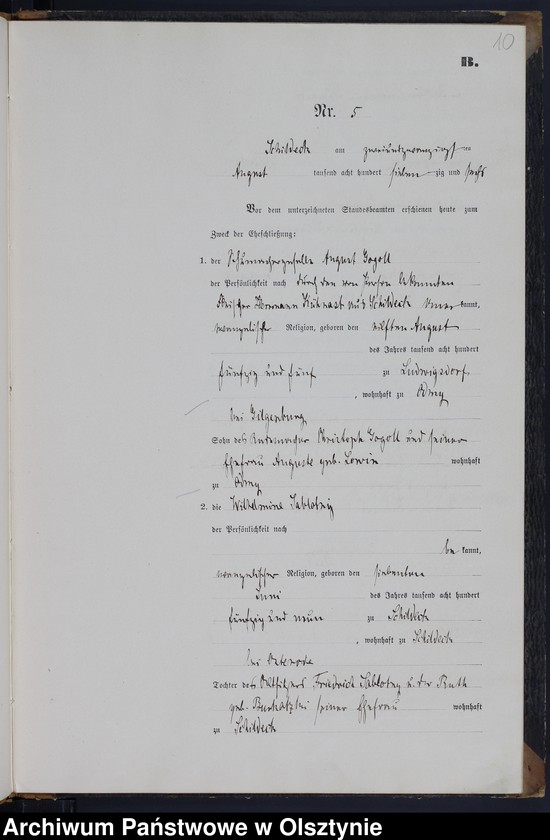 10
B.
Nr. 5
Schildeck am zweiundzwanzigsten
August tausend acht hundert sieben zig und sechs
Vor dem unterzeichneten Standesbeamten erschienen heute zum
Zweck der Eheschließung:
1. der Schumachergeselle August Gogoll
der Persönlichkeit nach durch den von Person bekannten
Fleischer Hermann Kühnast aus Schildeck kannt,
evangelischer Religion, geboren den elften August
des Jahres tausend acht hundert
fünfzig und fünf zu Ludwigsdorf
, wohnhaft zu
bei Gilgenburg
Sohn des Christoph Gogoll und seiner
Ehefrau Auguste geb. wohnhaft
zu
2. die Wilhelmine Jablotny
der Persönlichkeit nach
be kannt,
evangelischer Religion, geboren den siebenten
Juni des Jahres tausend acht hundert
fünfzig und neun zu Schildeck
, wohnhaft zu Schildeck
bei Osterode
Tochter des Friedrich Jablotny u. der Ruth
geb. seiner Ehefrau wohnhaft
zu Schildeck
Archiwum Państwowe w Olsztynie